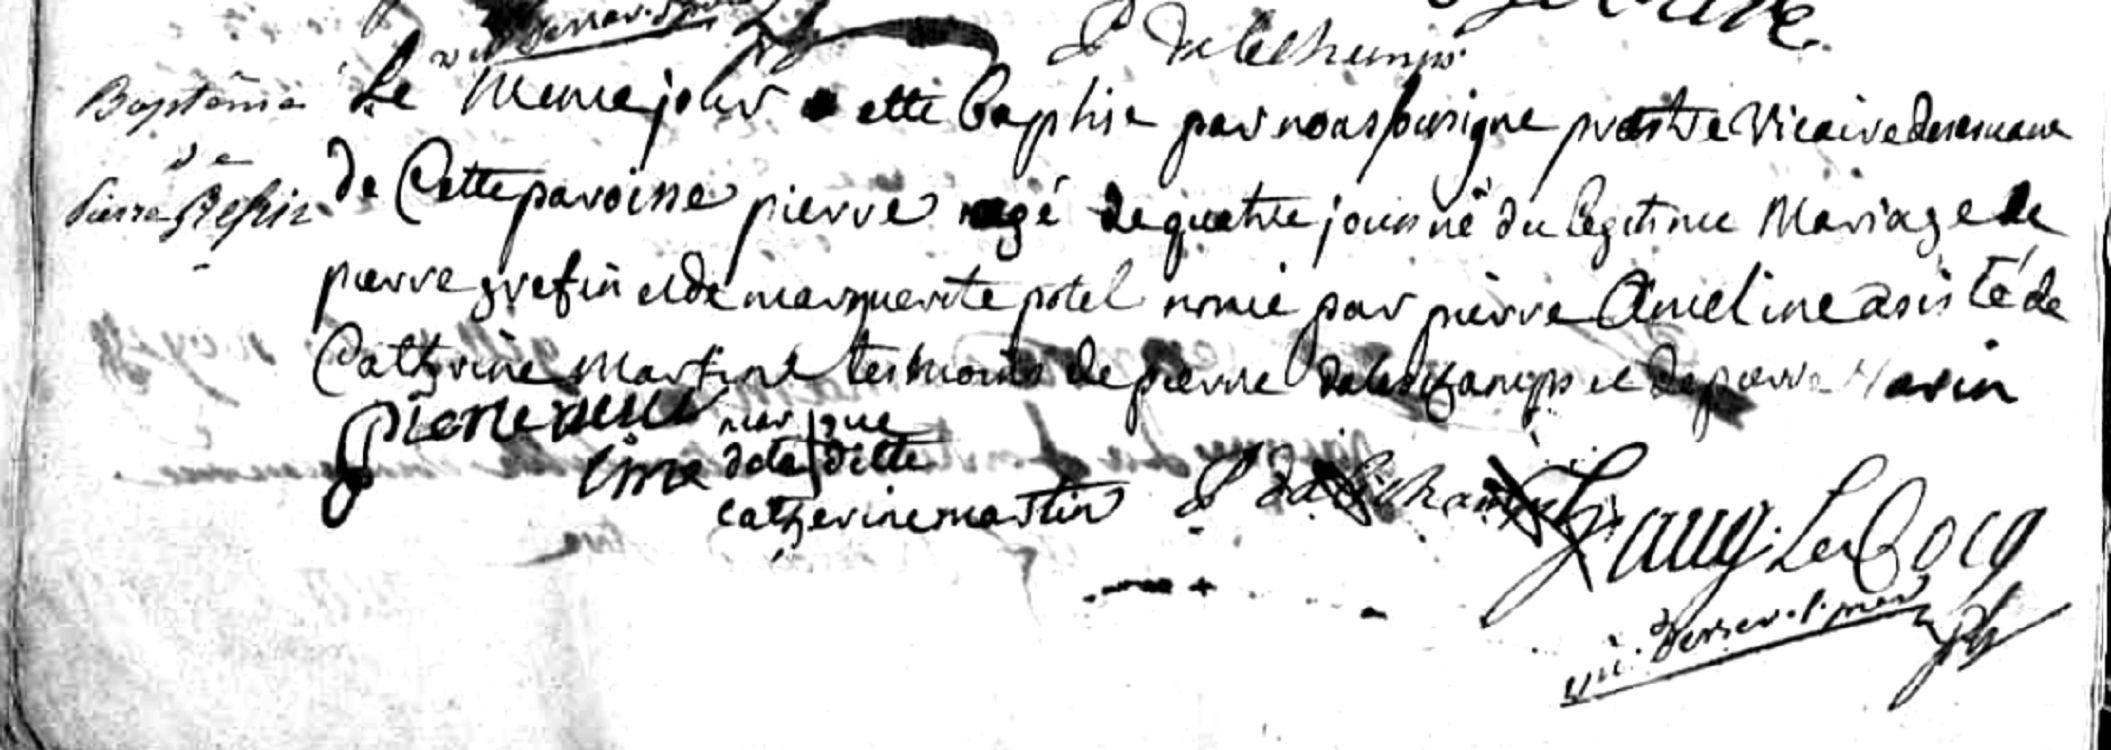 P Delechamps
Baptême
de
pierre Grefin
Le meme jour a ette baptise par nous soussigne prestre vicaire
de Cette paroisse pierre agé de quatre jours né du legitime Mariage de
pierre grefin et de marguerite potel nomé par pierre Ameline asisté de
Catherine Martine tesmoins de pierre delechamps et de pierre Marin
pierre
line
mar que
de la ditte
catherine martin
P delechamps
Le Cocq
vic. desser.